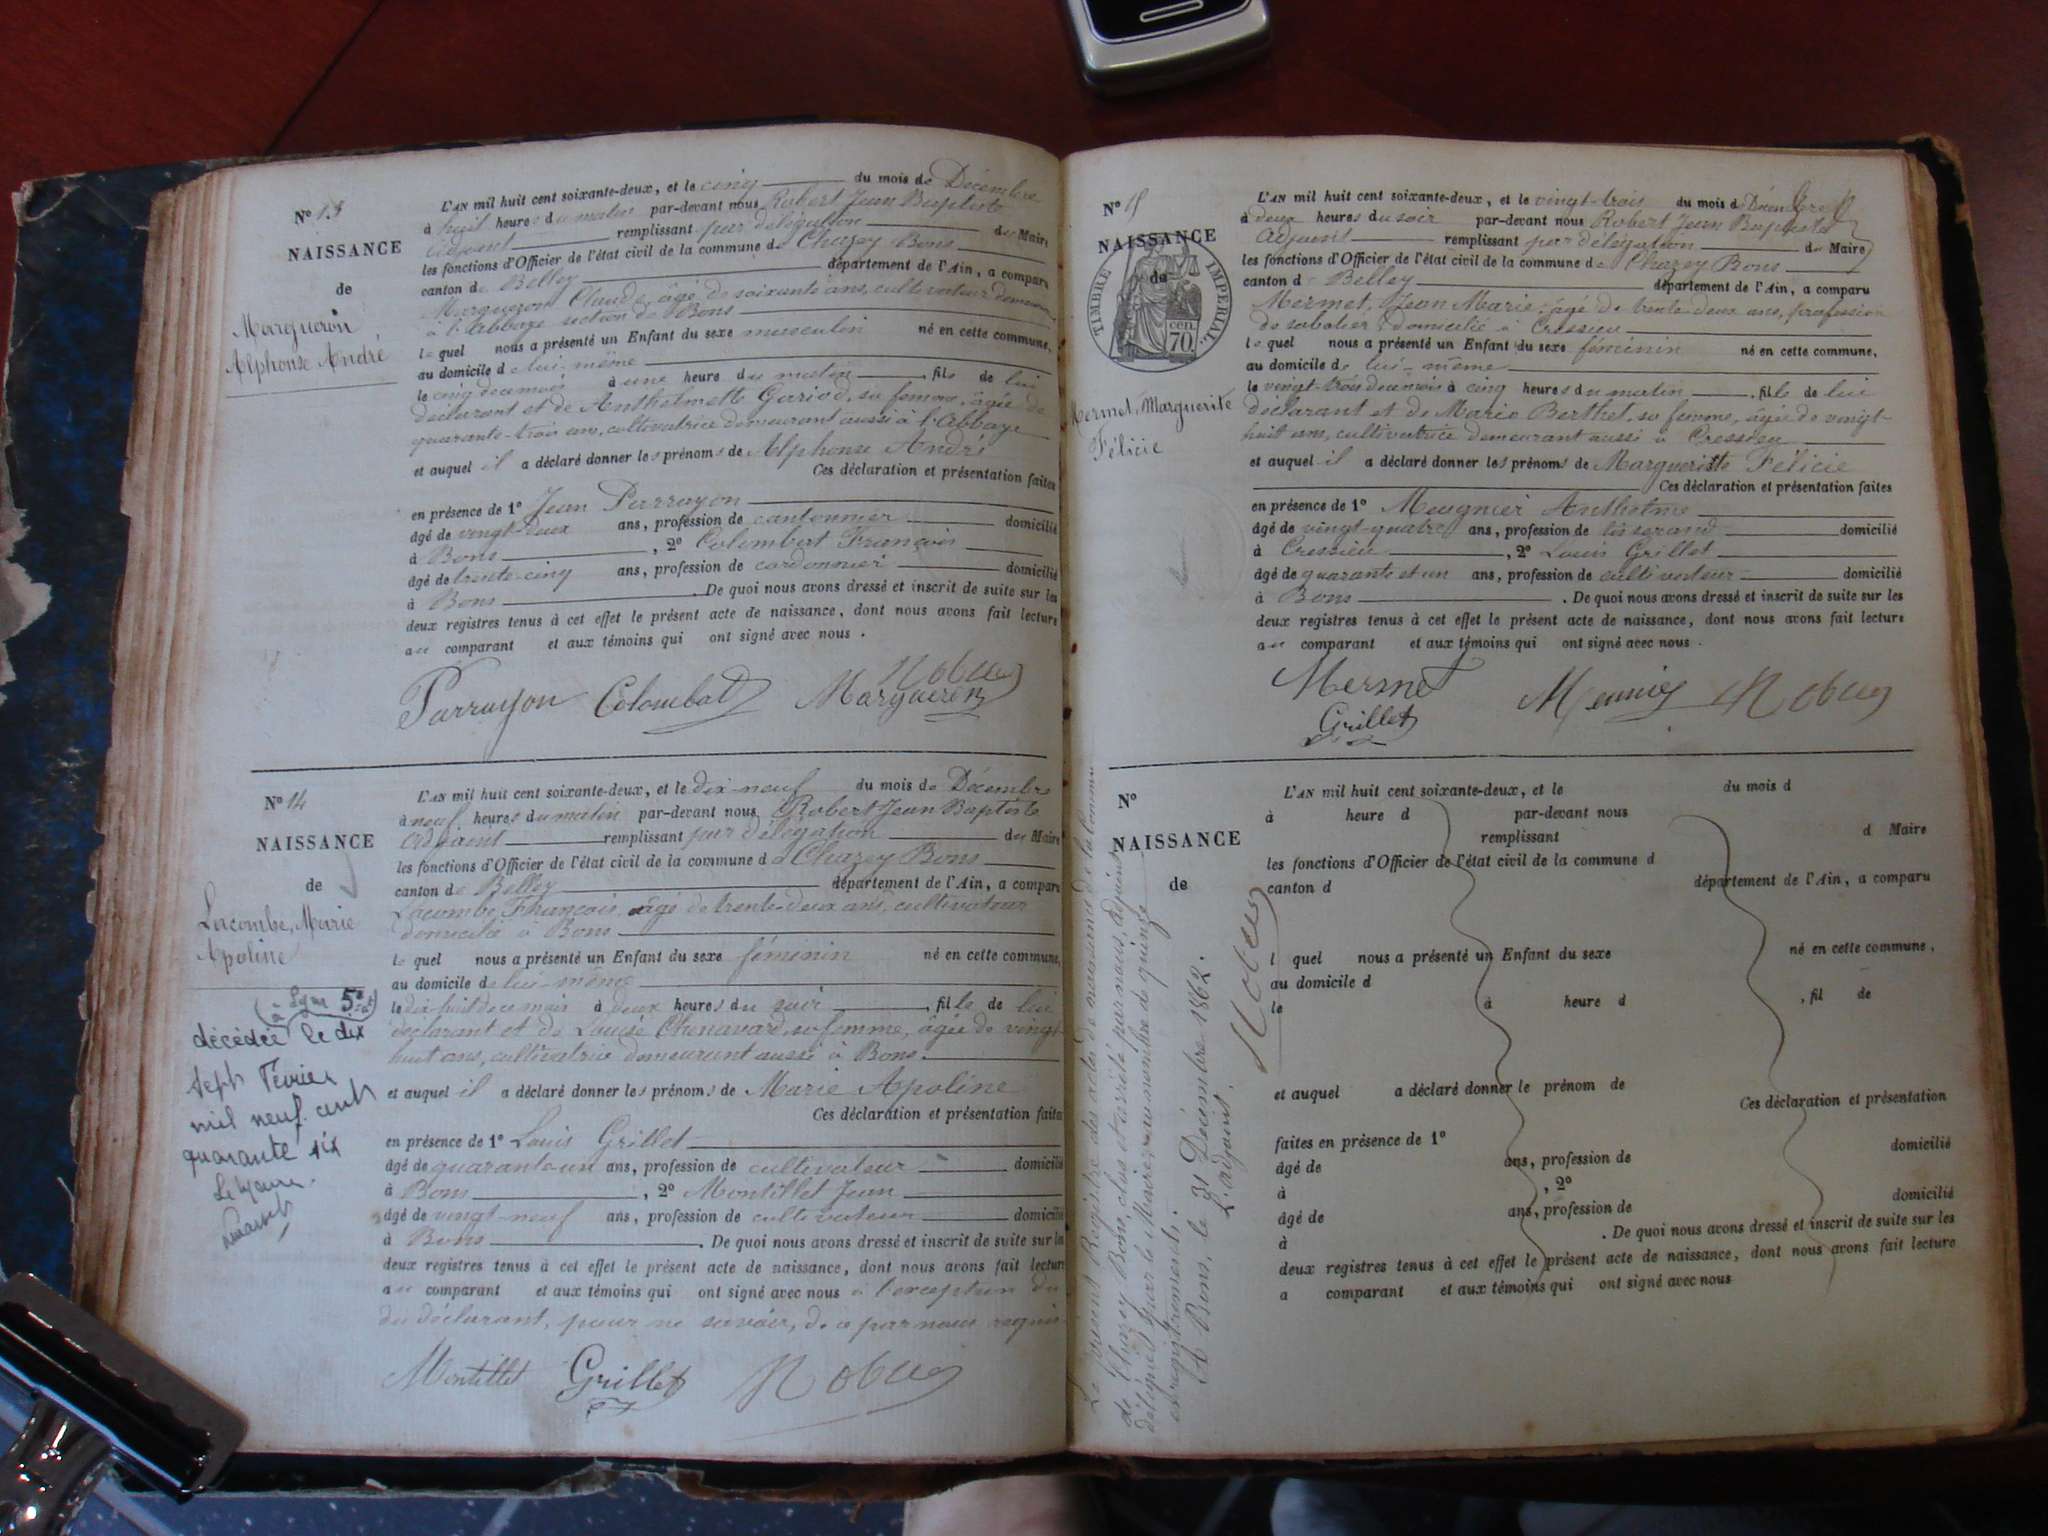 N° 13
NAISSANCE
de
Margueron
Alphonse André
L'AN mil huit cent soixante-deux, et le cinq du mois de Décembre
à huit heures du matin par-devant nous Robert Jean Baptiste
Adjoint remplissant par délégation du Maire
les fonctions d'Officier de l'état civil de la commune de Chazey Bons
canton de Belley département de l'Ain, a comparu
Margueron Claude, âgé de soixante ans, cultivateur demeurant
à l'Abbaye section de Bons
lequel nous a présenté un Enfant du sexe masculin né en cette commune,
au domicile de lui-même
le cinq du mois à une heure du matin, fils de lui
déclarant et de Anthelmette Gariod, sa femme, âgée de
quarante-trois ans, cultivatrice demeurant aussi à l'Abbaye
et auquel il a déclaré donner les prénoms de Alphonse André
Ces déclaration et présentation faites
en présence de 1° Jean Parrayon
âgé de vingt-deux ans, profession de cantonnier domicilié
à Bons, 2° Colombat François
âgé de trente-cinq ans, profession de cordonnier domicilié
à Bons. De quoi nous avons dressé et inscrit de suite sur les
deux registres tenus à cet effet le présent acte de naissance, dont nous avons fait lecture
au comparant et aux témoins qui ont signé avec nous.
Parrayon Colombat Margueron
N° 14
NAISSANCE
de
Lacombe, Marie
Apoline
décédée le dix
sept Février
mil neuf cent
quarante six
Le Maire
L'AN mil huit cent soixante-deux, et le dix-neuf du mois de Décembre
à neuf heures du matin par-devant nous Robert Jean Baptiste
Adjoint remplissant par délégation du Maire
les fonctions d'Officier de l'état civil de la commune de Chazey Bons
canton de Belley département de l'Ain, a comparu
Lacombe François, âgé de trente-deux ans, cultivateur
domicilié à Bons
lequel nous a présenté un Enfant du sexe féminin né en cette commune,
au domicile de lui-même
le dix-huit de ce mois à deux heures du soir, fille de lui
déclarant et de Louise Chenavard, sa femme, âgée de vingt-
huit ans, cultivatrice demeurant aussi à Bons.
et auquel il a déclaré donner les prénoms de Marie Apoline
Ces déclaration et présentation faites
en présence de 1° Louis Grillet
âgé de quarante-un ans, profession de cultivateur domicilié
à Bons, 2° Montillet Jean
âgé de vingt-neuf ans, profession de cultivateur domicilié
à Bons. De quoi nous avons dressé et inscrit de suite sur les
deux registres tenus à cet effet le présent acte de naissance, dont nous avons fait lecture
au comparant et aux témoins qui ont signé avec nous à l'exception du
du déclarant, pour ne savoir, de ce par nous requis
Montillet Grillet
N° 15
NAISSANCE
de
TIMBRE IMPERIAL.
cen.
70
Mermet, Marguerite
Félicie
L'AN mil huit cent soixante-deux, et le vingt-trois du mois de Décembre
à deux heures du soir par-devant nous Robert Jean Baptiste
Adjoint remplissant par délégation du Maire
les fonctions d'Officier de l'état civil de la commune de Chazey Bons
canton de Belley département de l'Ain, a comparu
Mermet, Jean Marie, âgé de trente-deux ans, profession
de sabotier, domicilié à Cressieu
lequel nous a présenté un Enfant du sexe féminin né en cette commune,
au domicile de lui-même
le vingt-trois de ce mois à cinq heures du matin, fille de lui
déclarant et de Marie Berthet, sa femme, âgée de vingt-
huit ans, cultivatrice demeurant aussi à Cressieu
et auquel il a déclaré donner les prénoms de Marguerite Félicie
Ces déclaration et présentation faites
en présence de 1° Meugnier Anthelme
âgé de vingt-quatre ans, profession de tisserand domicilié
à Cressieu, 2° Louis Grillet
âgé de quarante et un ans, profession de cultivateur domicilié
à Bons. De quoi nous avons dressé et inscrit de suite sur les
deux registres tenus à cet effet le présent acte de naissance, dont nous avons fait lecture
au comparant et aux témoins qui ont signé avec nous.
Mermet
Grillet
N°
NAISSANCE
de
L'AN mil huit cent soixante-deux, et le du mois d
à heure d par-devant nous
remplissant d Maire
les fonctions d'Officier de l'état civil de la commune d
canton d département de l'Ain, a comparu
l quel nous a présenté un Enfant du sexe né en cette commune,
au domicile d
le à heure d , fil de
et auquel a déclaré donner le prénom de
Ces déclaration et présentation
faites en présence de 1° domicilié
âgé de ans, profession de
à , 2°
âgé de ans, profession de domicilié
à . De quoi nous avons dressé et inscrit de suite sur les
deux registres tenus à cet effet le présent acte de naissance, dont nous avons fait lecture
a comparant et aux témoins qui ont signé avec nous
Le présent Registre des actes de naissances de la Commune
de Chazey Bons, clos et arrêté par nous, adjoint
délégué par le Maire, au nombre de quinze
enregistrements.
A Bons, le 31 Décembre 1862.
L'adjoint,